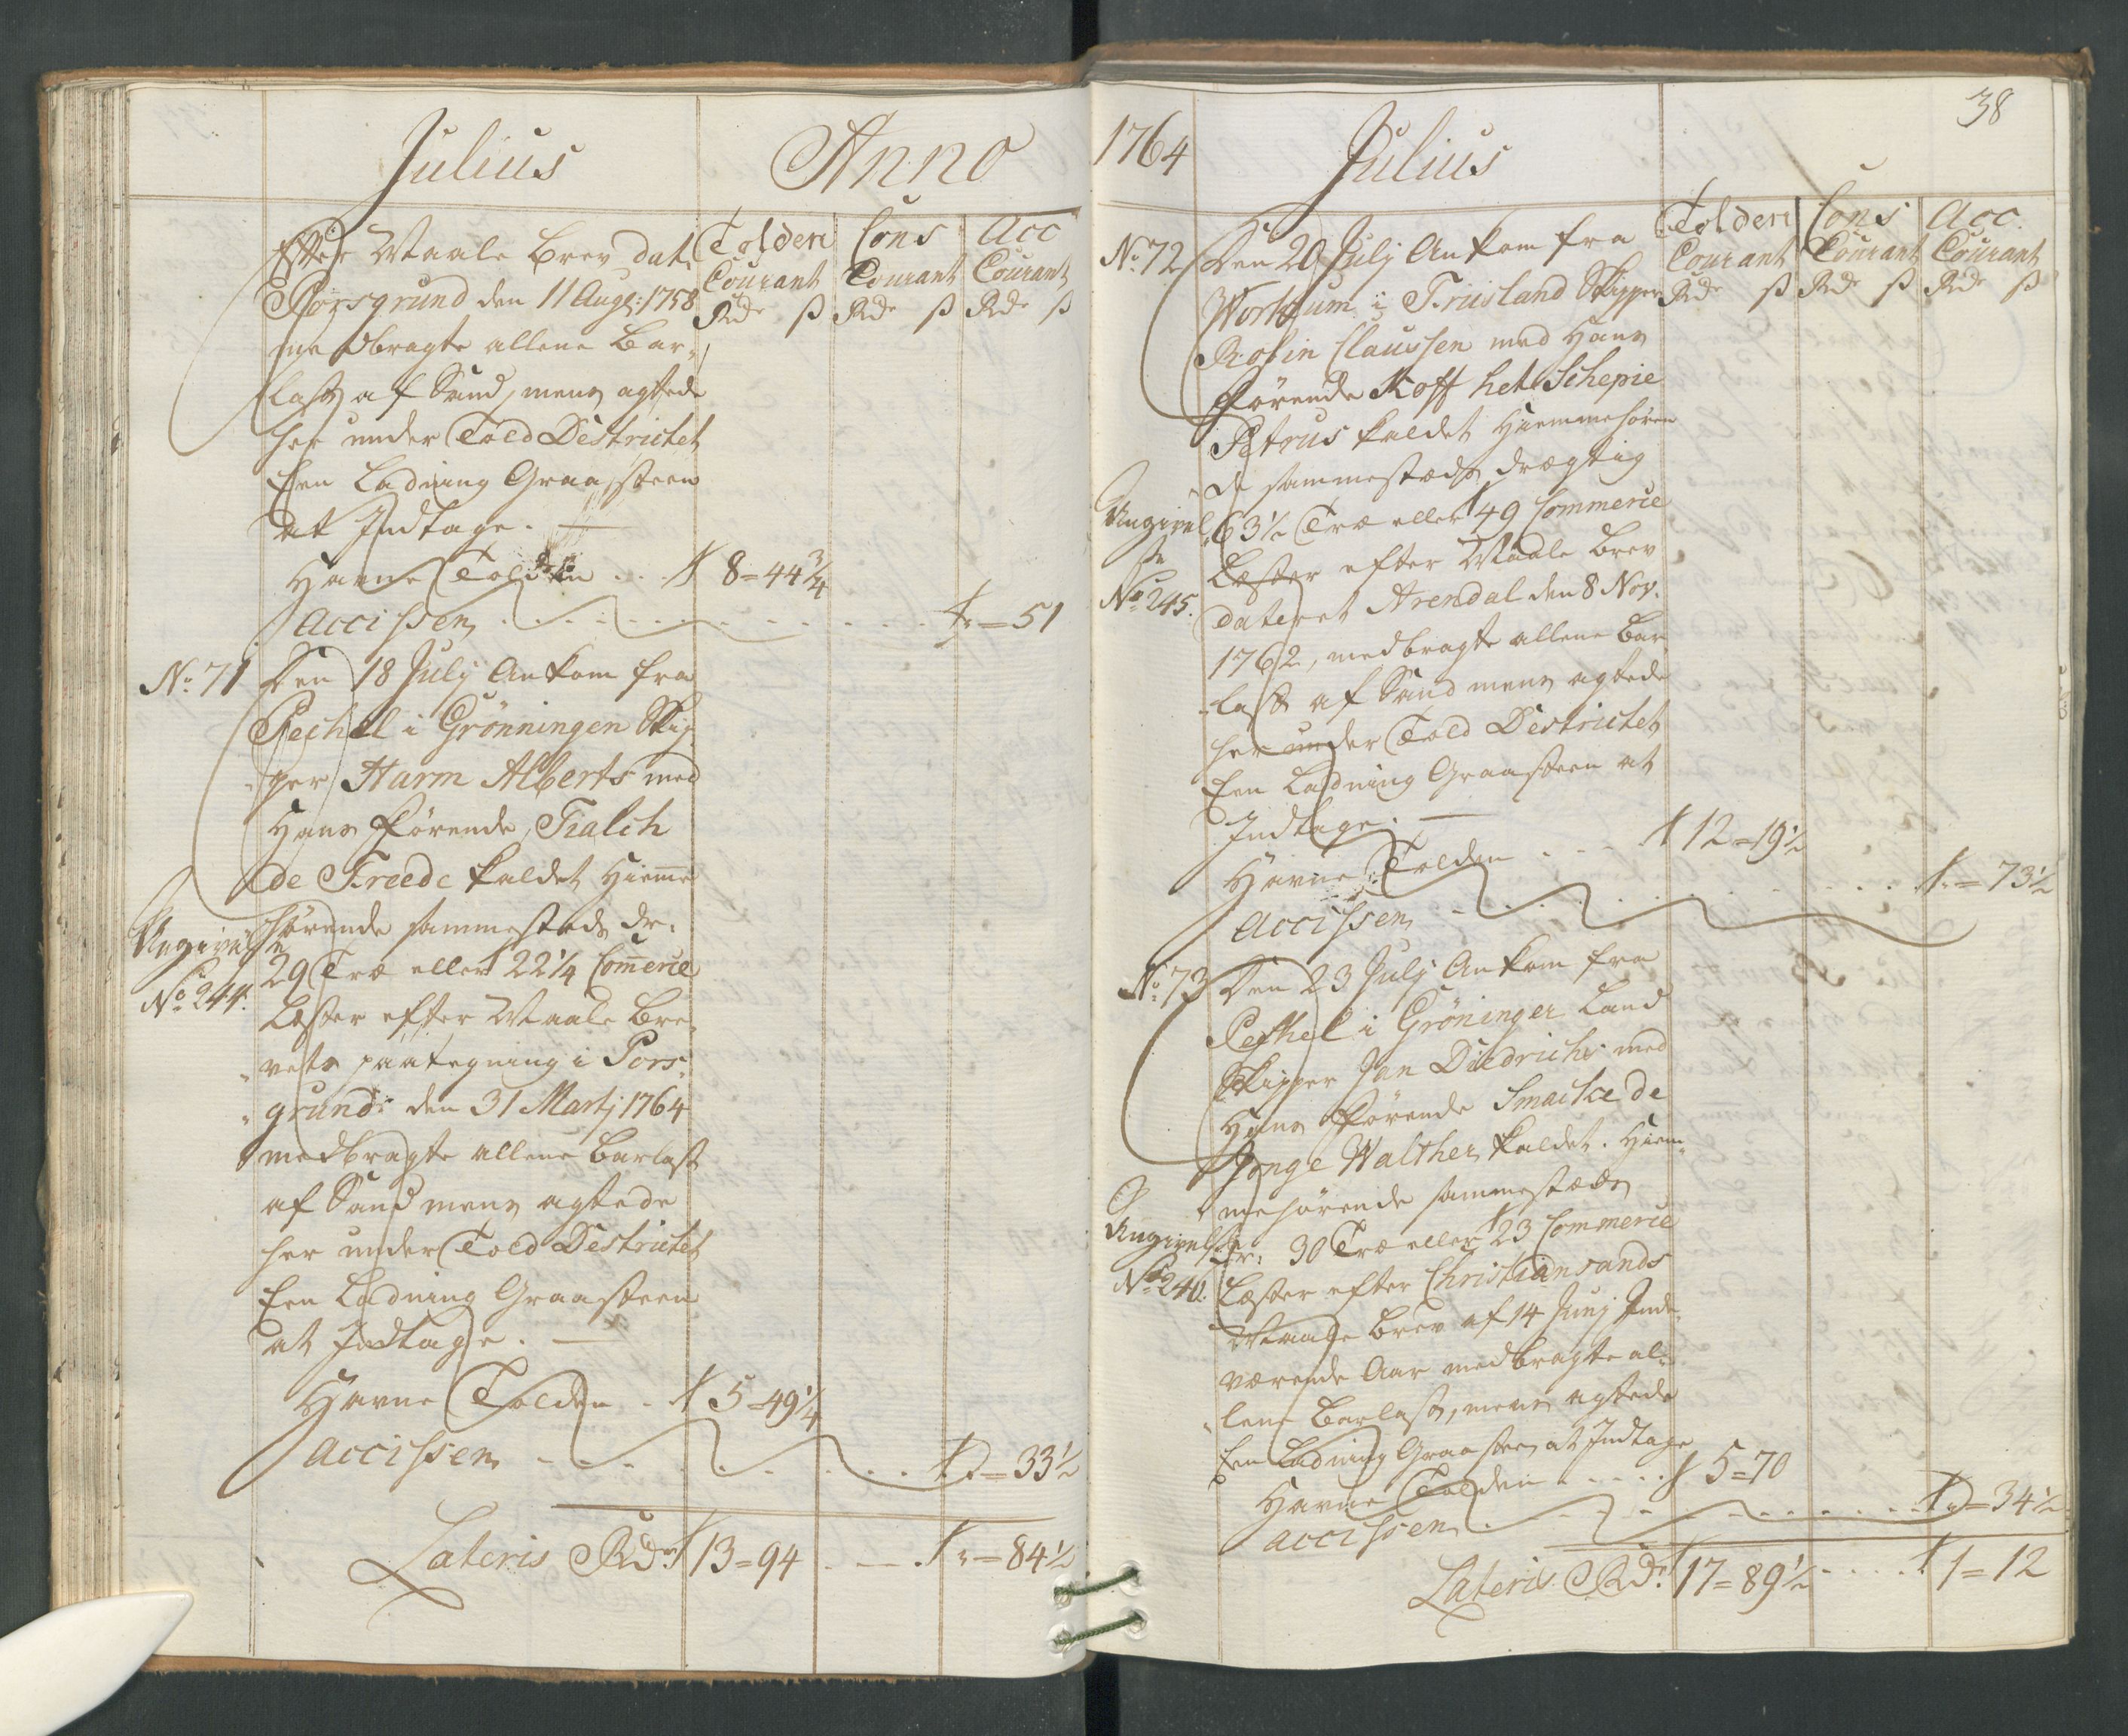 Julius Anno
Tolden Cons Acc
Courant Courant Courant
Rdr ß Rdr ß Rdr ß
Efter Maale Brev dat.
Porsgrund den 11 Aug: 1758
medbragte allene Bar-
last af Sand, mens agtede
her under Told Districtet
Een Ladning Graasteen
at Indtage. —
Havne Tolden . . . 8=44 3/4
Accissen . . . . . . . =51
No. 71 Den 18 July Ankom fra
Pechel i Grönningen Skip-
per Harm Alberts med
Hans förende Tialch
de Freede kaldet Hiemme
hörende sammesteds dr:
Angivelse
No 244.
29 Træ eller 22 1/4 Comerce
Læster efter Maale Bre-
vets paategning i Pors-
grund: den 31 Martj 1764
medbragte allene Barlast
af Sand mens agtede
her under Told Districtet
Een Ladning Graasteen
at Indtage. —
Havne Tolden . 5=49 1/4
Accissen . . . . . . =33 1/2
Lateris Rdr 13=94 . — . =84 1/2
38
1764 Julius
Tolden Cons Acc.
Courant Courant Courant
Rdr ß Rdr ß Rdr ß
No. 72 Den 20 July Ankom fra
Workum i Friisland Skipper
Rofin Claussen med Hans
förende Koff het Schepie
Petrus kaldet Hiemmehören
de sammesteds drægtig
Angivelse
No 245.
63 1/2 Træ eller 49 Commerce
Læster efter Maale Brev
dateret Arendal den 8 Nov.
1762, medbragte allene Bar
last af Sand mens agtede
her under Told Districtet
Een Ladning Graasteen at
Indtage. —
Havne Tolden . . . 12=19 1/2
Accissen . . . . . . . =73 1/2
No. 73 Den 23 July Ankom fra
Pechel i Gröninger Land
Skipper Jan Diedrichs med
Hans förende Smacke de
Jonge Walther kaldet. Hiem-
mehörende sammesteds
Angivelse
No 246.
dr: 30 Træ eller 23 Commerce
Læster efter Christiansands
Maale Brev af 14 Junj Inde-
værende Aar medbragte al-
lene Barlast, mens agtede
Een Ladning Graasteen at Indtage
Havne Tolden . . . . . 5=70
Accissen . . . . . . . =34 1/2
Lateris Rdr. 17=89 1/2 . . . . 1=12